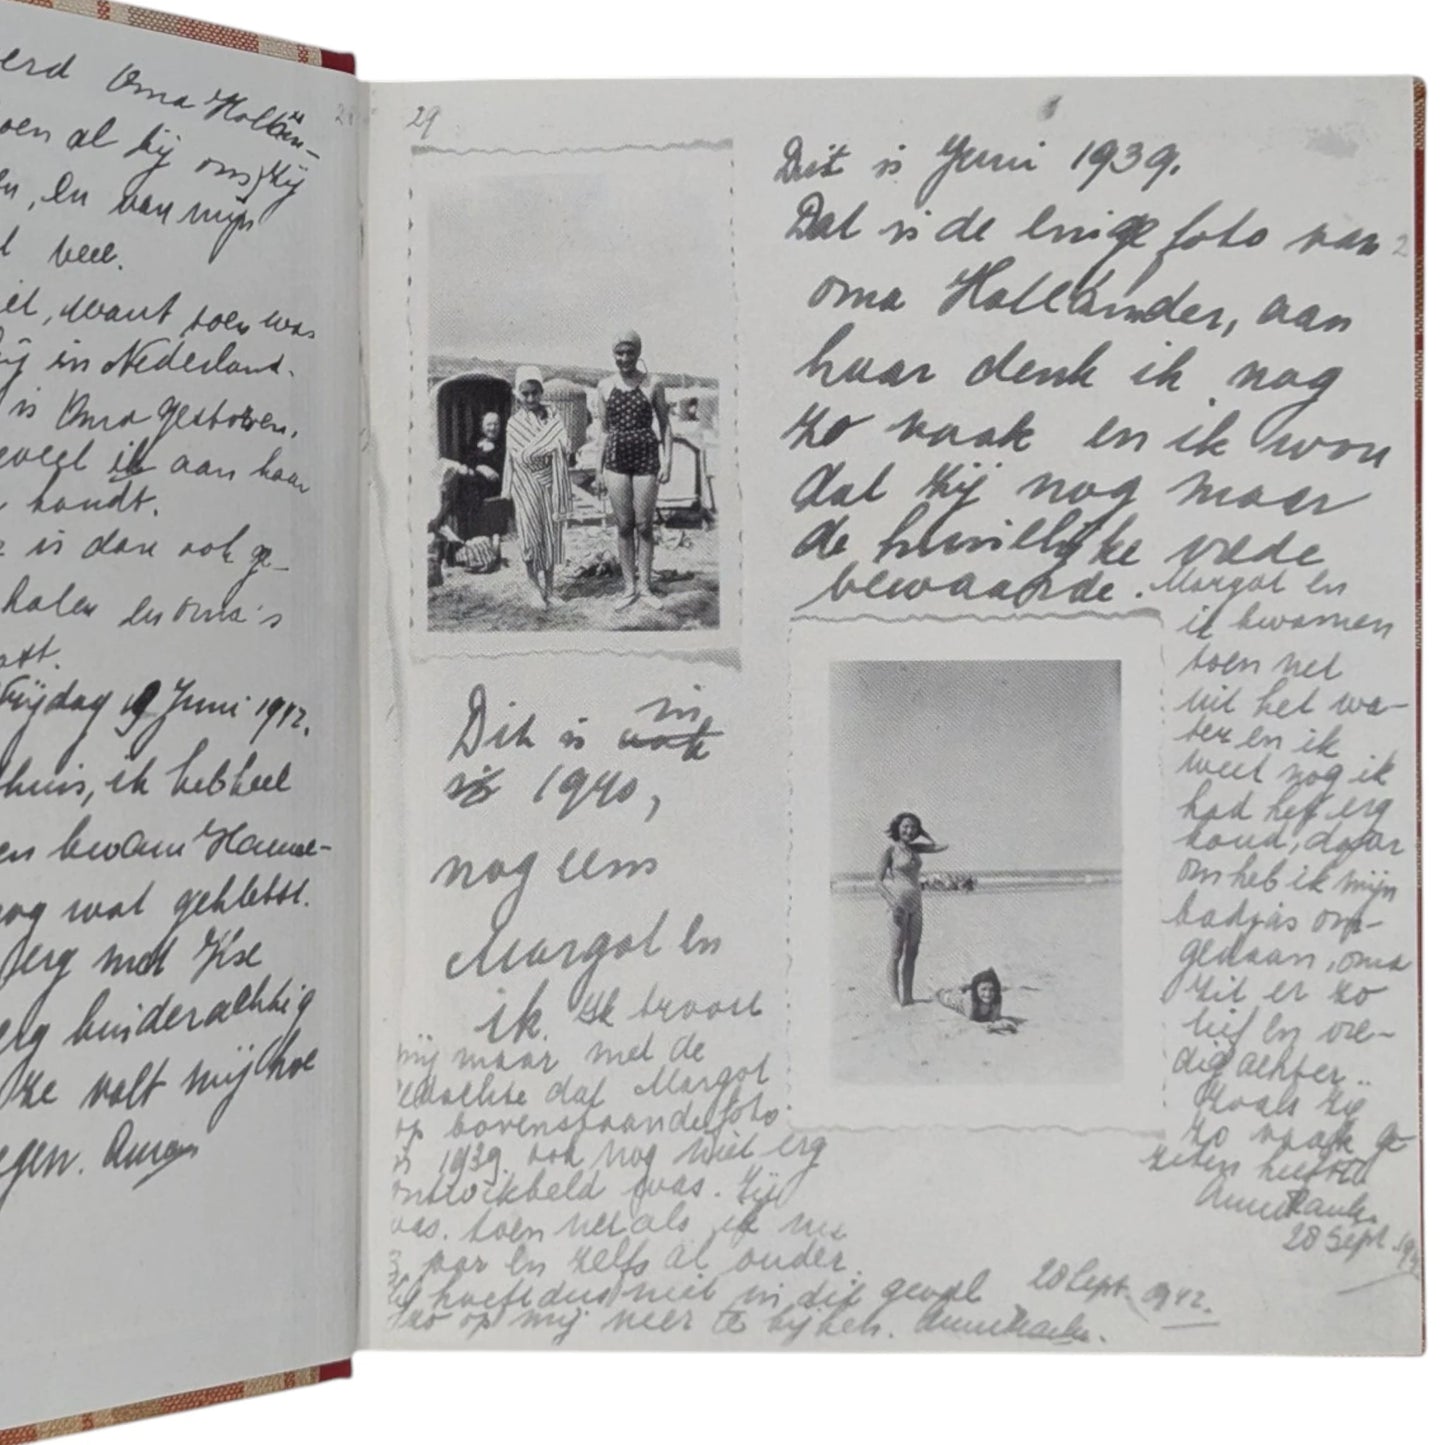 erd Oma Hollän-
oen al bij ons, zij
en, en van mijn
veel.
iet, want toen was
ij in Nederland.
is Oma gestorven,
eveel ik aan haar
houdt.
is dan ook ge-
halen en oma's
Vrijdag 19 Juni 1942.
huis, ik heb heel
en kwam Hanne-
nog wat gekletst.
erg met Ilse
erg kinderachtig
ze valt mij hoe
egen. Anne
29
Dit is Juni 1939.
Dat is de enige foto van
oma Hollander, aan
haar denk ik nog
zo vaak en ik wou
dat zij nog maar
de huiselijke vrede
bewaarde.
Margot en
ik kwamen
toen net
uit het wa-
ter en ik
weet nog ik
had het erg
koud, daar
om heb ik mijn
badjas om-
gedaan, oma
zit er zo
lief en vre-
dig achter..
Zoals zij
zo vaak ge
zeten heeft
Anne Frank.
28 Sept. 194
Dit is in
1940,
nog eens
Margot en
ik. Ik troost
mij maar met de
gedachte dat Margot
op bovenstaande foto
is 1939. ook nog niet erg
ontwikkeld was. Zij
was toen net als ik nu
13 jaar en zelfs al ouder.
Zij hoeft dus niet in dit geval
zo op mij neer te kijken. Anne Frank.
28 Sept. 1942.